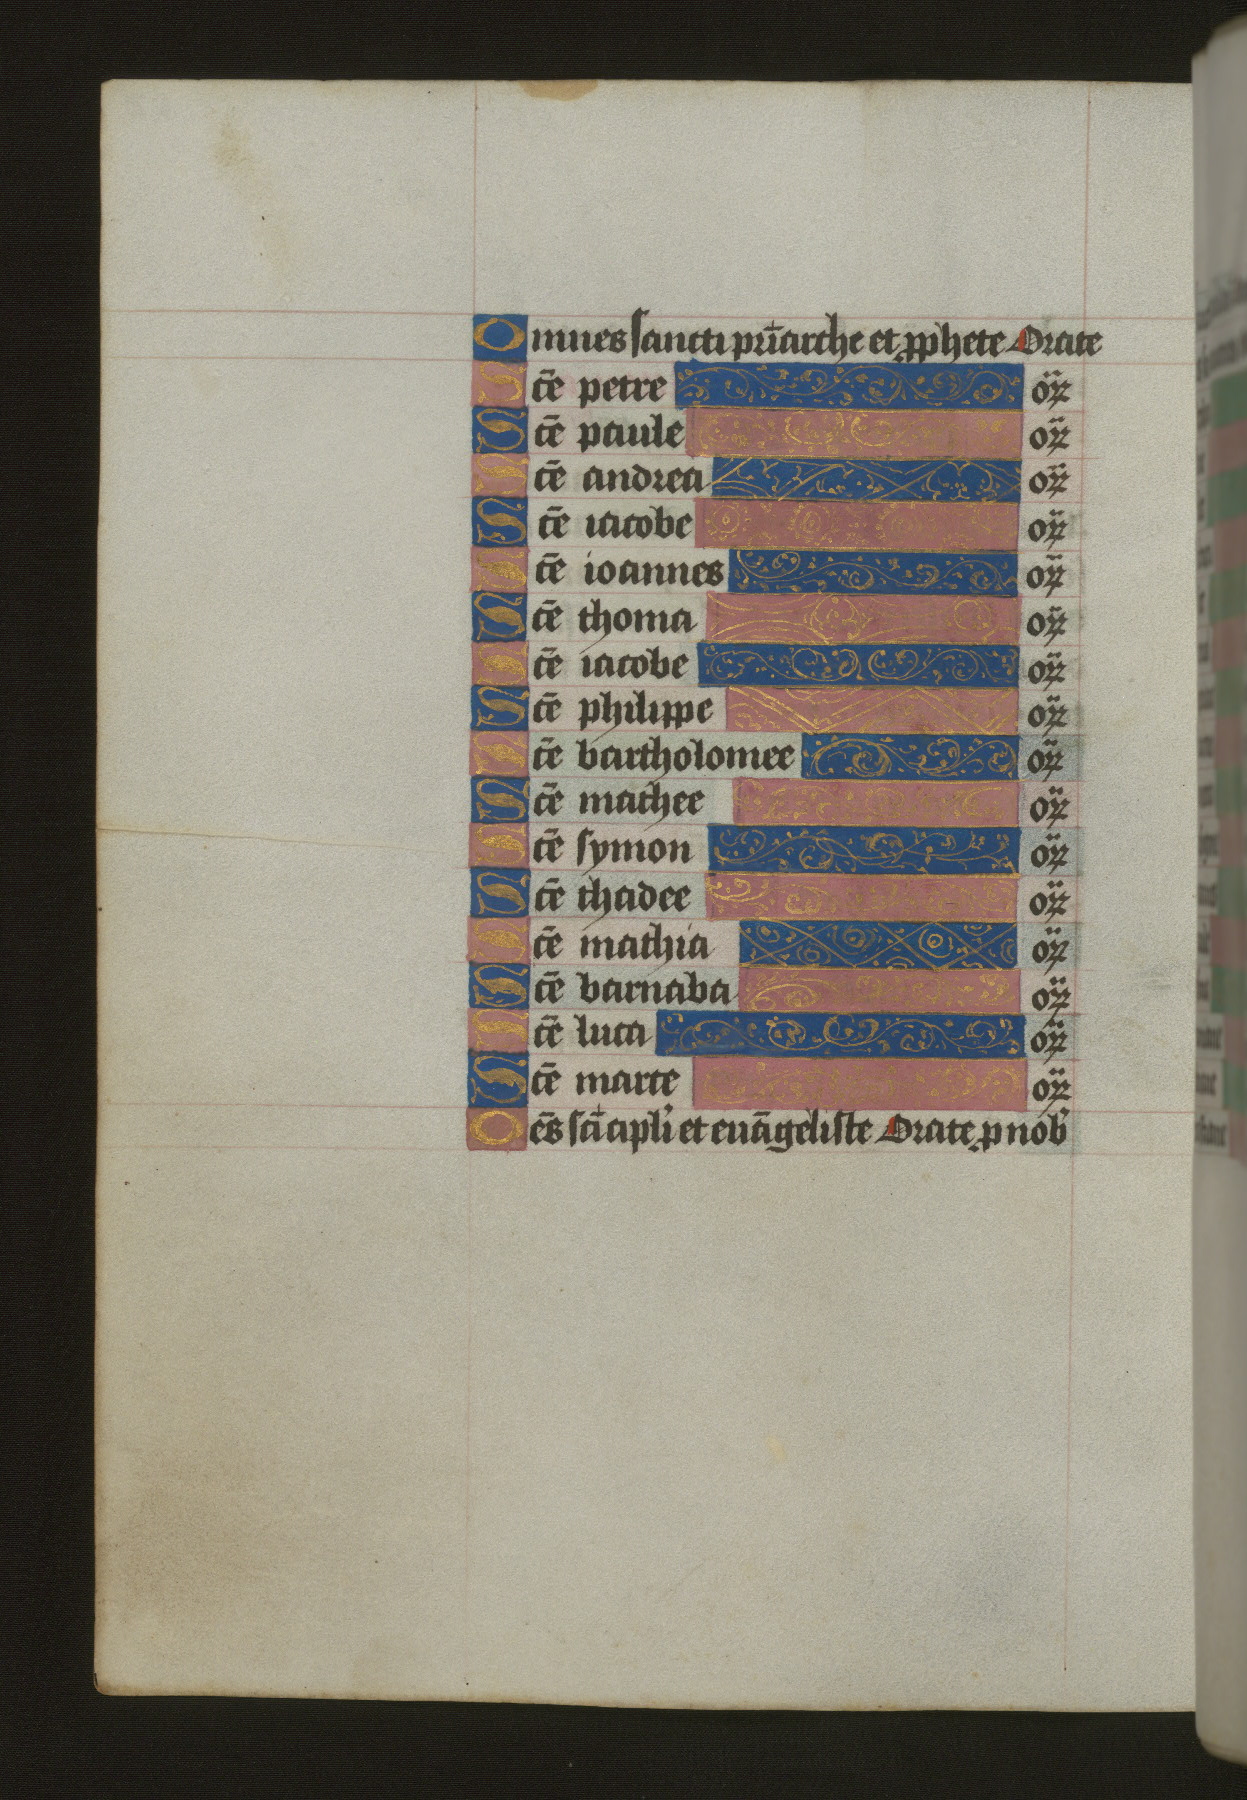 Omnes sancti pr̄iarche et ꝓphete Orate
Sc̄e petre or̄
Sc̄e paule or̄
Sc̄e andrea or̄
Sc̄e iacobe or̄
Sc̄e ioannes or̄
Sc̄e thoma or̄
Sc̄e iacobe or̄
Sc̄e philippe or̄
Sc̄e bartholomee or̄
Sc̄e mathee or̄
Sc̄e symon or̄
Sc̄e thadee or̄
Sc̄e mathia or̄
Sc̄e barnaba or̄
Sc̄e luca or̄
Sc̄e marce or̄
Oēs sc̄i apl'i et euāgeliste Orate ꝓ nob'